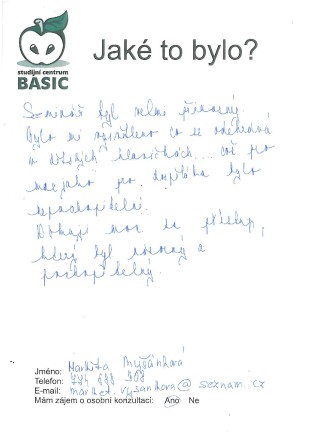 studijní centrum
BASIC
Jaké to bylo?
Seminář byl velmi přínosný.
Bylo mi vysvětleno co se odehrává
v dětských hlavičkách... což pro
mne jako pro dospěláka bylo
nepochopitelné.
Děkuji moc za přístup,
který byl názorný a
pochopitelný.
Jméno: Markéta
Telefon: 774
E-mail: @seznam.cz
Mám zájem o osobní konzultaci: Ano Ne